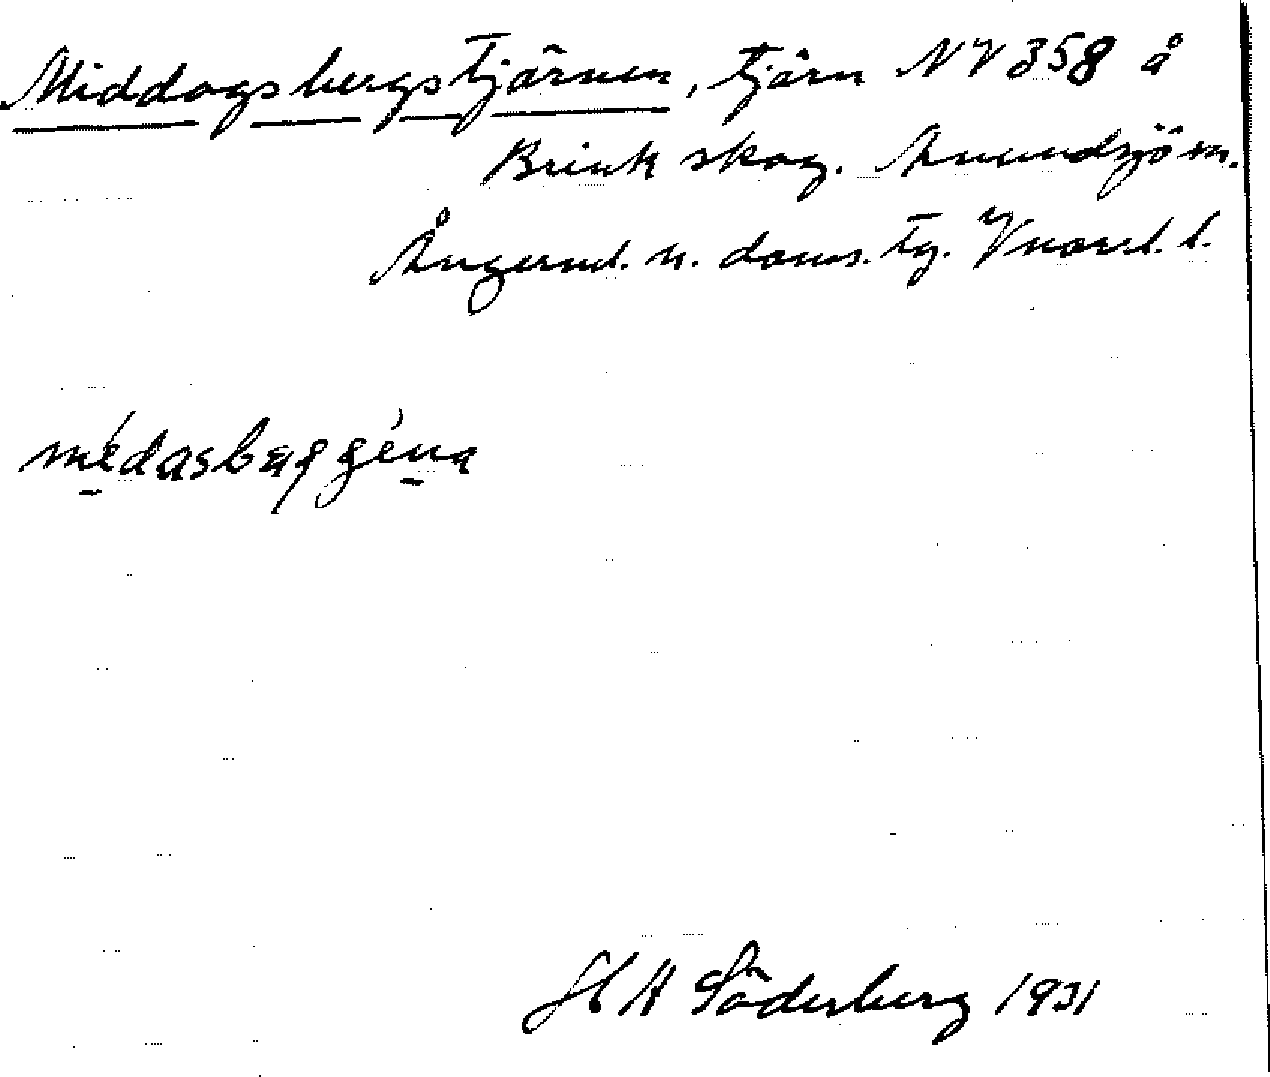 Middagsbergstjärnen, tjärn NV 358 å
Brink skog. Anundsjö sn.
Ångerml. n. doms. tg. Vnorrl. l.
H A Söderberg 1931